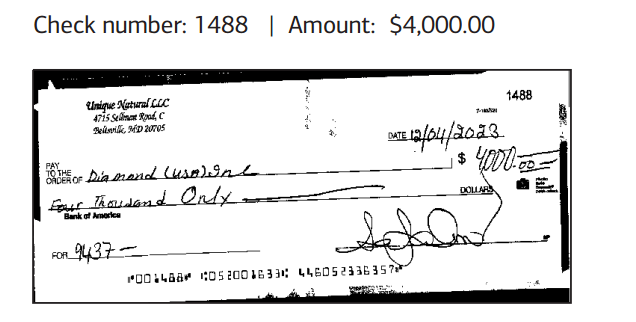 Check number: 1488 | Amount: $4,000.00
1488
Unique Natural LLC
4715 Sellman Road, C
Beltsville, MD 20705
DATE 12/04/2023
PAY
TO THE
ORDER OF Diamond (USA) Inc
$ 4000.00
Four Thousand Only
DOLLARS
Bank of America
FOR 9437
⑈001488⑈ ⑆052001633⑆ 446052336357⑈